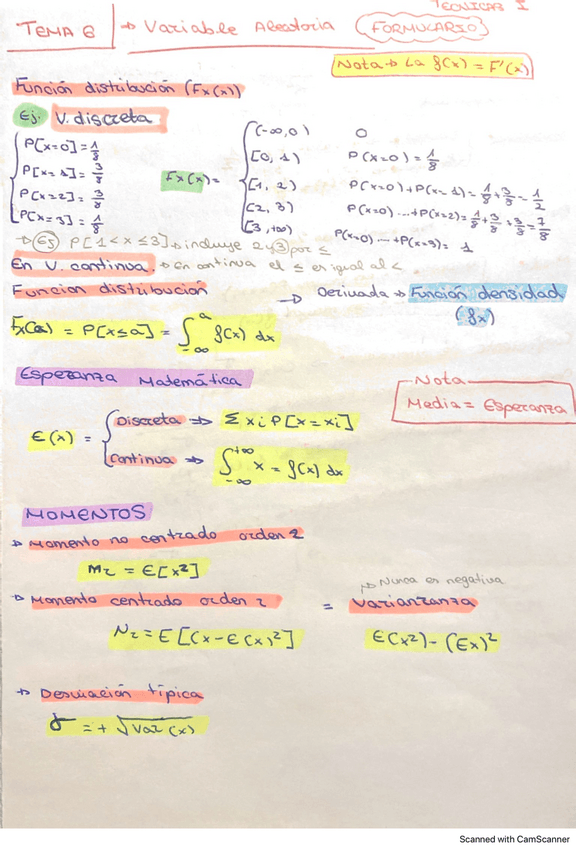 TECNICAS I
TEMA 6 → Variable Aleatoria (FORMULARIO)
Nota → La f(x) = F'(x)
Función distribución (Fx(x))
Ej. V. discreta
P[x=0] = 1/8
P[x=1] = 3/8
P[x=2] = 3/8
P[x=3] = 1/8
Fx(x) =
(-∞,0) 0
[0, 1) P(x=0) = 1/8
[1, 2) P(x=0)+P(x=1) = 1/8 + 3/8 = 1/2
[2, 3) P(x=0) ...+P(x=2) = 1/8 + 3/8 + 3/8 = 7/8
[3,+∞) P(x=0) ...+P(x=3) = 1
→ Ej P[1<x≤3] → incluye 2,3 por ≤
En V. continua. → En continua el ≤ es igual al <
Funcion distribución → Derivada → Función densidad (fx)
Fx(a) = P[x≤a] = ∫ a -∞ f(x) dx
Esperanza Matemática
Nota
Media = Esperanza
E(x) =
Discreta ⇒ Σ xi P[x=xi]
Continua ⇒ ∫ +∞ -∞ x = f(x) dx
MOMENTOS
→ Momento no centrado orden 2
M2 = E[x²]
→ Nunca es negativa
→ Momento centrado orden 2 = Varianzanza
N2 = E[(x-E(x)²] E(x²)-(Ex)²
→ Desviación típica
σ = + √Var(x)
Scanned with CamScanner